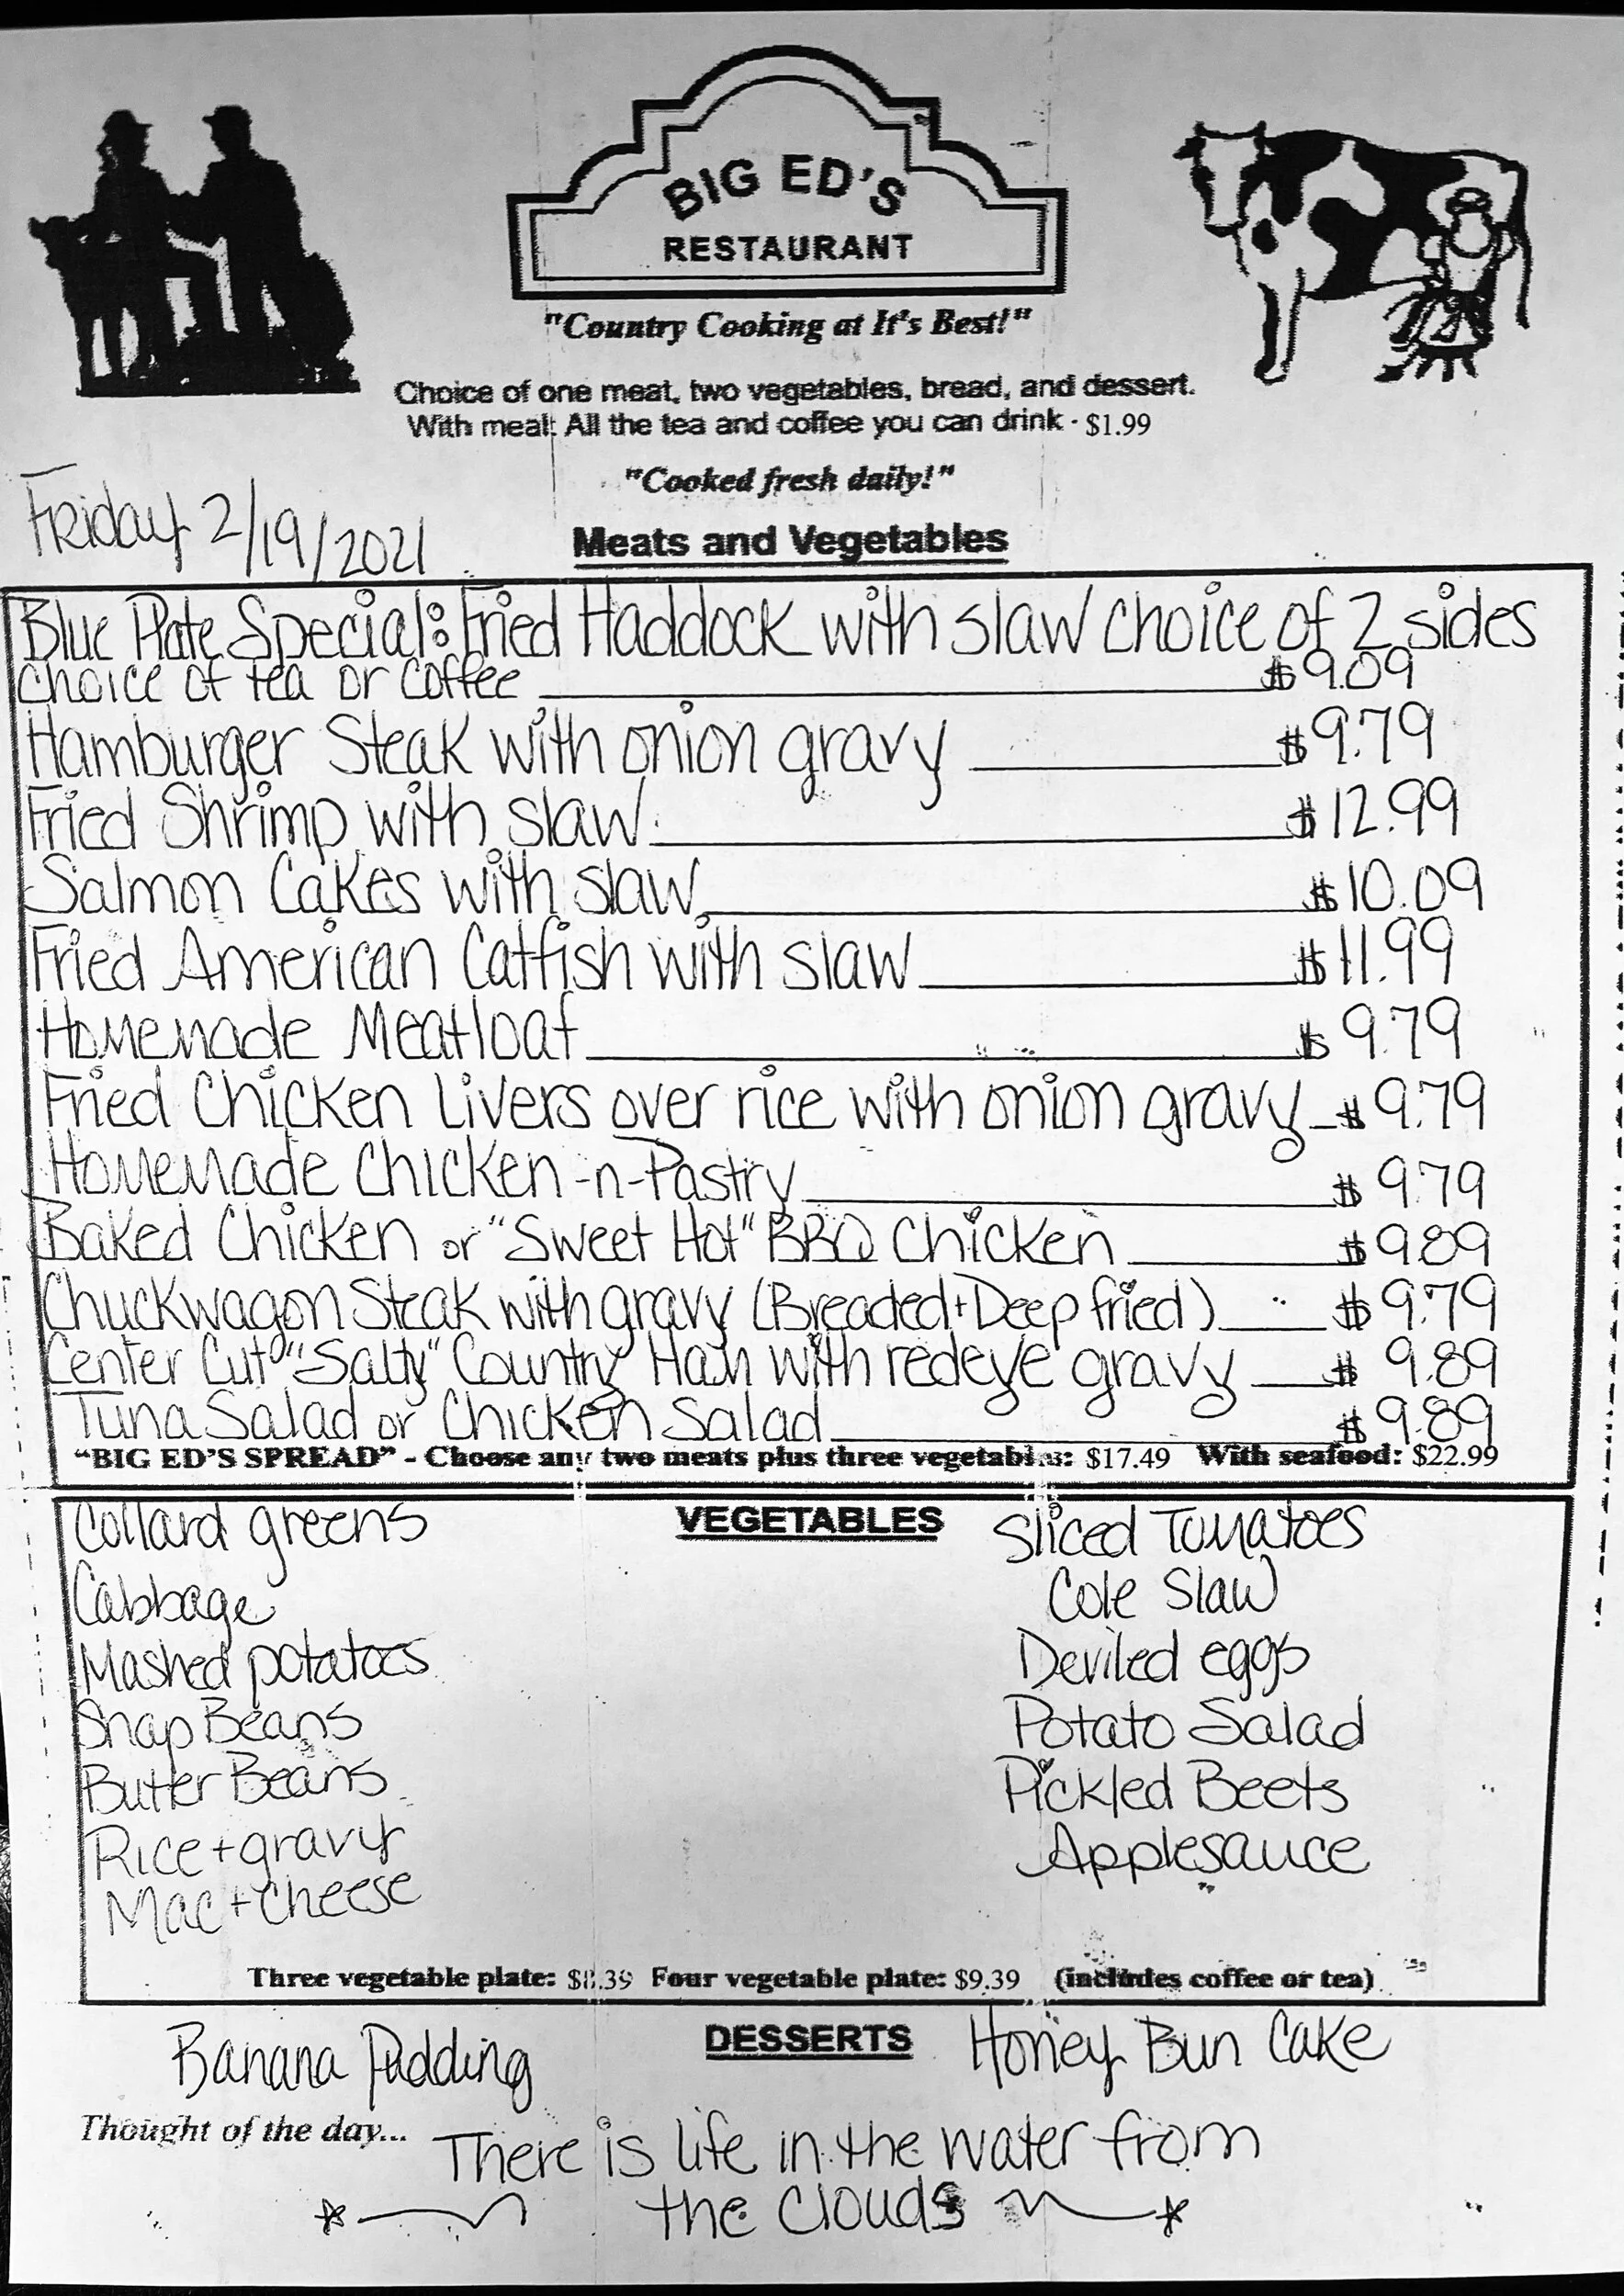 BIG ED'S
RESTAURANT
"Country Cooking at It's Best!"
Choice of one meat, two vegetables, bread, and dessert.
With meal: All the tea and coffee you can drink - $1.99
"Cooked fresh daily!"
Friday 2/19/2021
Meats and Vegetables
Blue Plate Special: Fried Haddock with slaw choice of 2 sides
choice of tea or coffee $9.09
Hamburger Steak with onion gravy $9.79
Fried Shrimp with slaw $12.99
Salmon Cakes with slaw $10.09
Fried American Catfish with slaw $11.99
Homemade Meatloaf $9.79
Fried Chicken Livers over rice with onion gravy $9.79
Homemade Chicken-n-Pastry $9.79
Baked Chicken or "Sweet Hot" BBQ Chicken $9.89
Chuckwagon Steak with gravy (Breaded + Deep fried) $9.79
Center Cut "Salty" Country Ham with redeye gravy $9.89
Tuna Salad or Chicken Salad $9.89
"BIG ED'S SPREAD" - Choose any two meats plus three vegetables: $17.49 With seafood: $22.99
VEGETABLES
Collard greens
Cabbage
Mashed potatoes
Snap Beans
Butter Beans
Rice + gravy
Mac + Cheese
Sliced Tomatoes
Cole Slaw
Deviled eggs
Potato Salad
Pickled Beets
Applesauce
Three vegetable plate: $8.39 Four vegetable plate: $9.39 (includes coffee or tea)
DESSERTS
Banana Pudding
Honey Bun Cake
Thought of the day...
There is life in the water from
the clouds